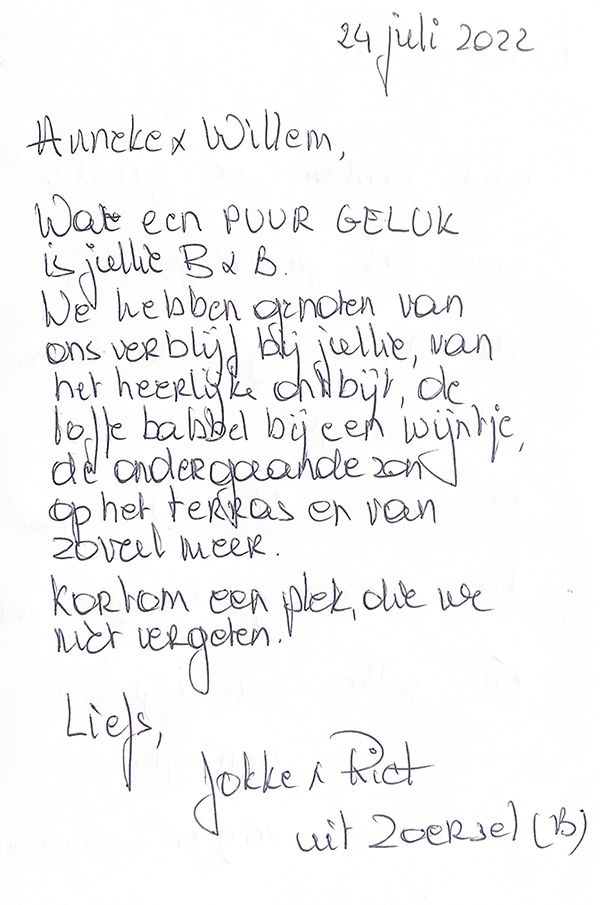 24 juli 2022
Anneke & Willem,
Wat een PUUR GELUK
is jullie B & B.
We hebben genoten van
ons verblijf bij jullie, van
het heerlijke ontbijt, de
toffe babbel bij een wijntje,
de ondergaande zon
op het terras en van
zoveel meer.
Kortom een plek, die we
niet vergeten.
Liefs,
Jokke & Riet
uit Zoersel (B)